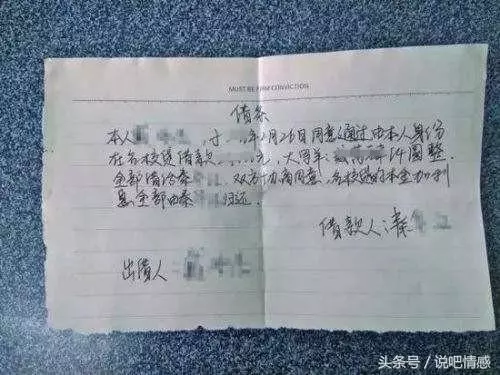 MUST BE FIRM CONVICTION
借条
本人 于 年2月26日同意通过由本人身份
在各校贷借款 元,大写: 仟圆整
全部借给秦 双方协商同意,各校贷的本金加利
息全部由秦 归还。
借款人:秦
出借人
头条号 / 说吧情感